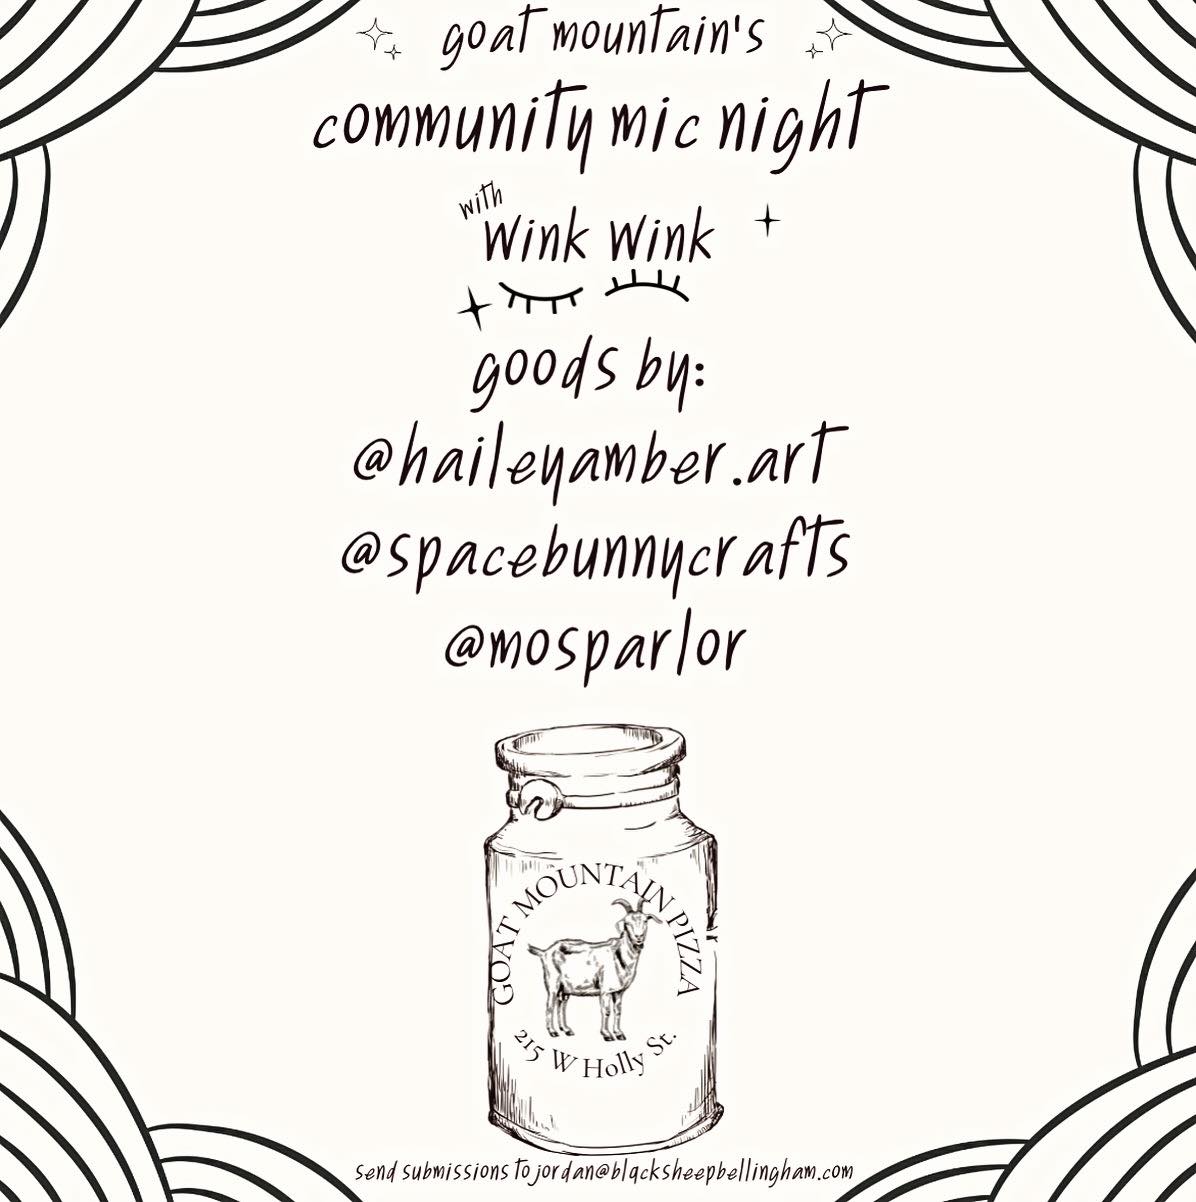 goat mountain's
community mic night
with
Wink Wink
goods by:
@haileyamber.art
@spacebunnycrafts
@mosparlor
GOAT MOUNTAIN PIZZA
215 W Holly St.
send submissions to jordan@blacksheepbellingham.com